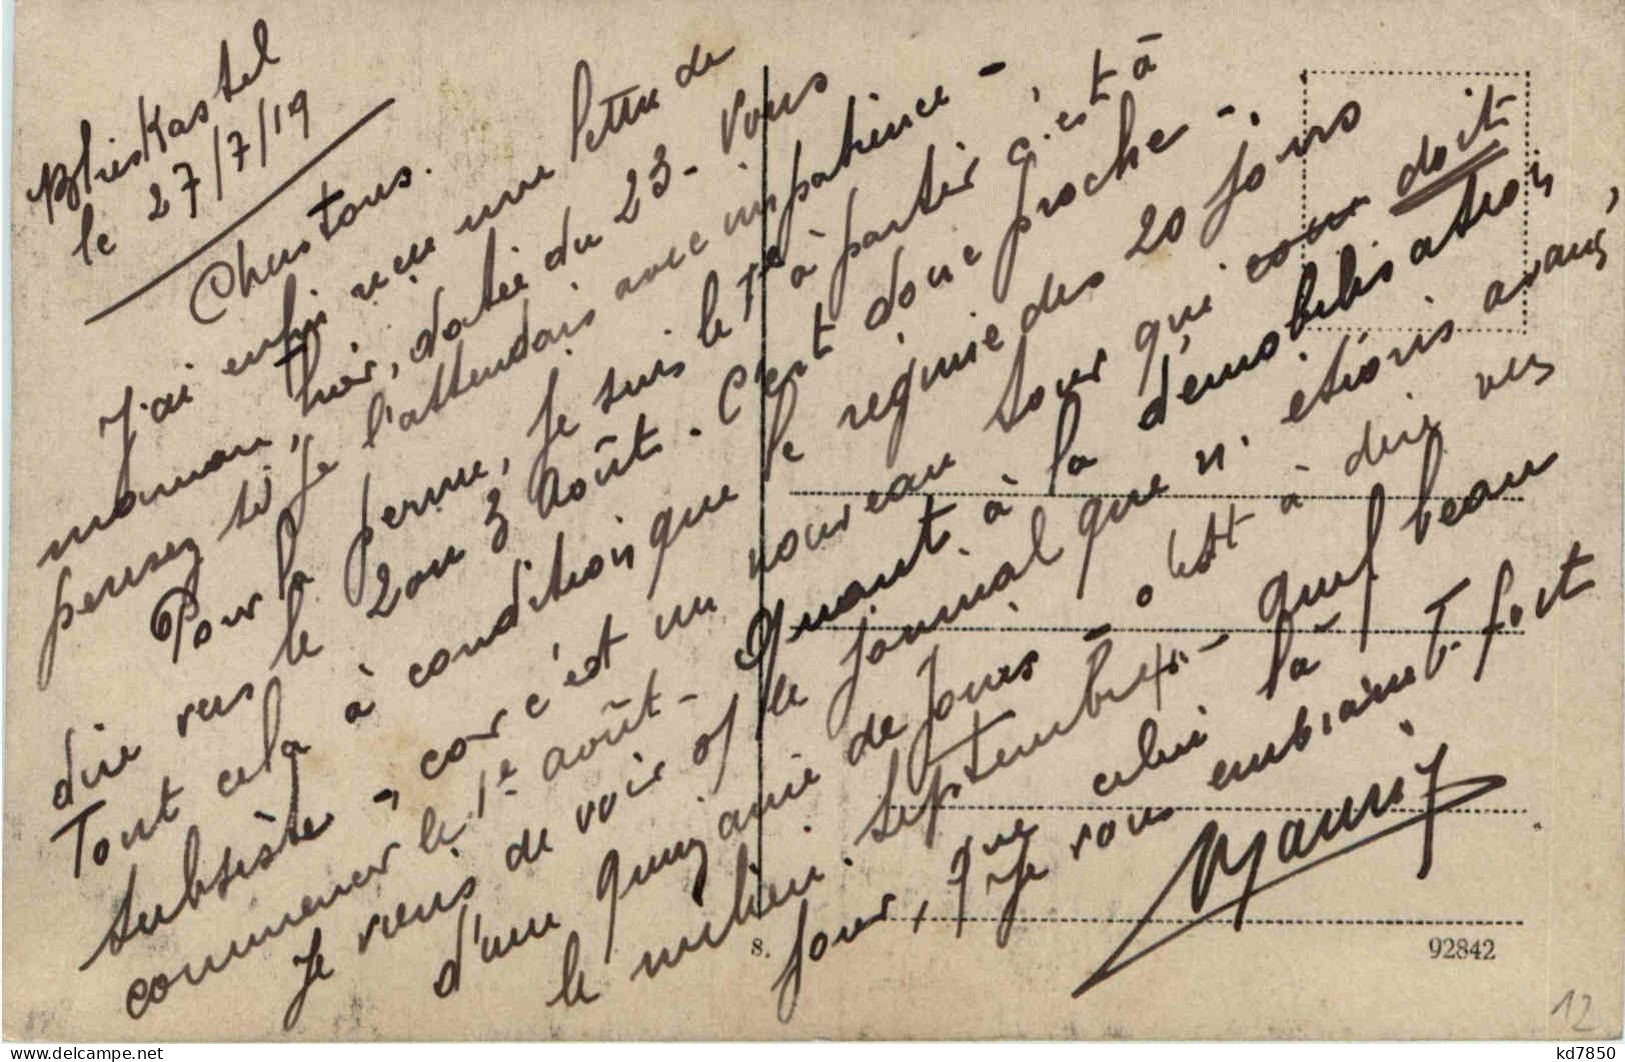 Blieskastel
le 27/7/19
Chers tous.
J'ai enfin reçu une lettre de
maman, hier, datée du 23 - Vous
pensez si je l'attendais avec impatience -
Pour la perme, je suis le 1er à partir c'est à
dire vers le 2 ou 3 Août. C'est donc proche -.
Tout cela à condition que le régime des 20 jours
subsiste, car c'est un nouveau tour qui doit
commencer le 1er août - Quant à la démobilisation
Je viens de voir sur le journal que n' étions avancé,
d'une quinzaine de jours - c'est à dire vers
le milieu septembre - Quel beau
jour, que celui là - 
Je vous embrasse T. fort
Maurice
8.
92842
12
kd7850